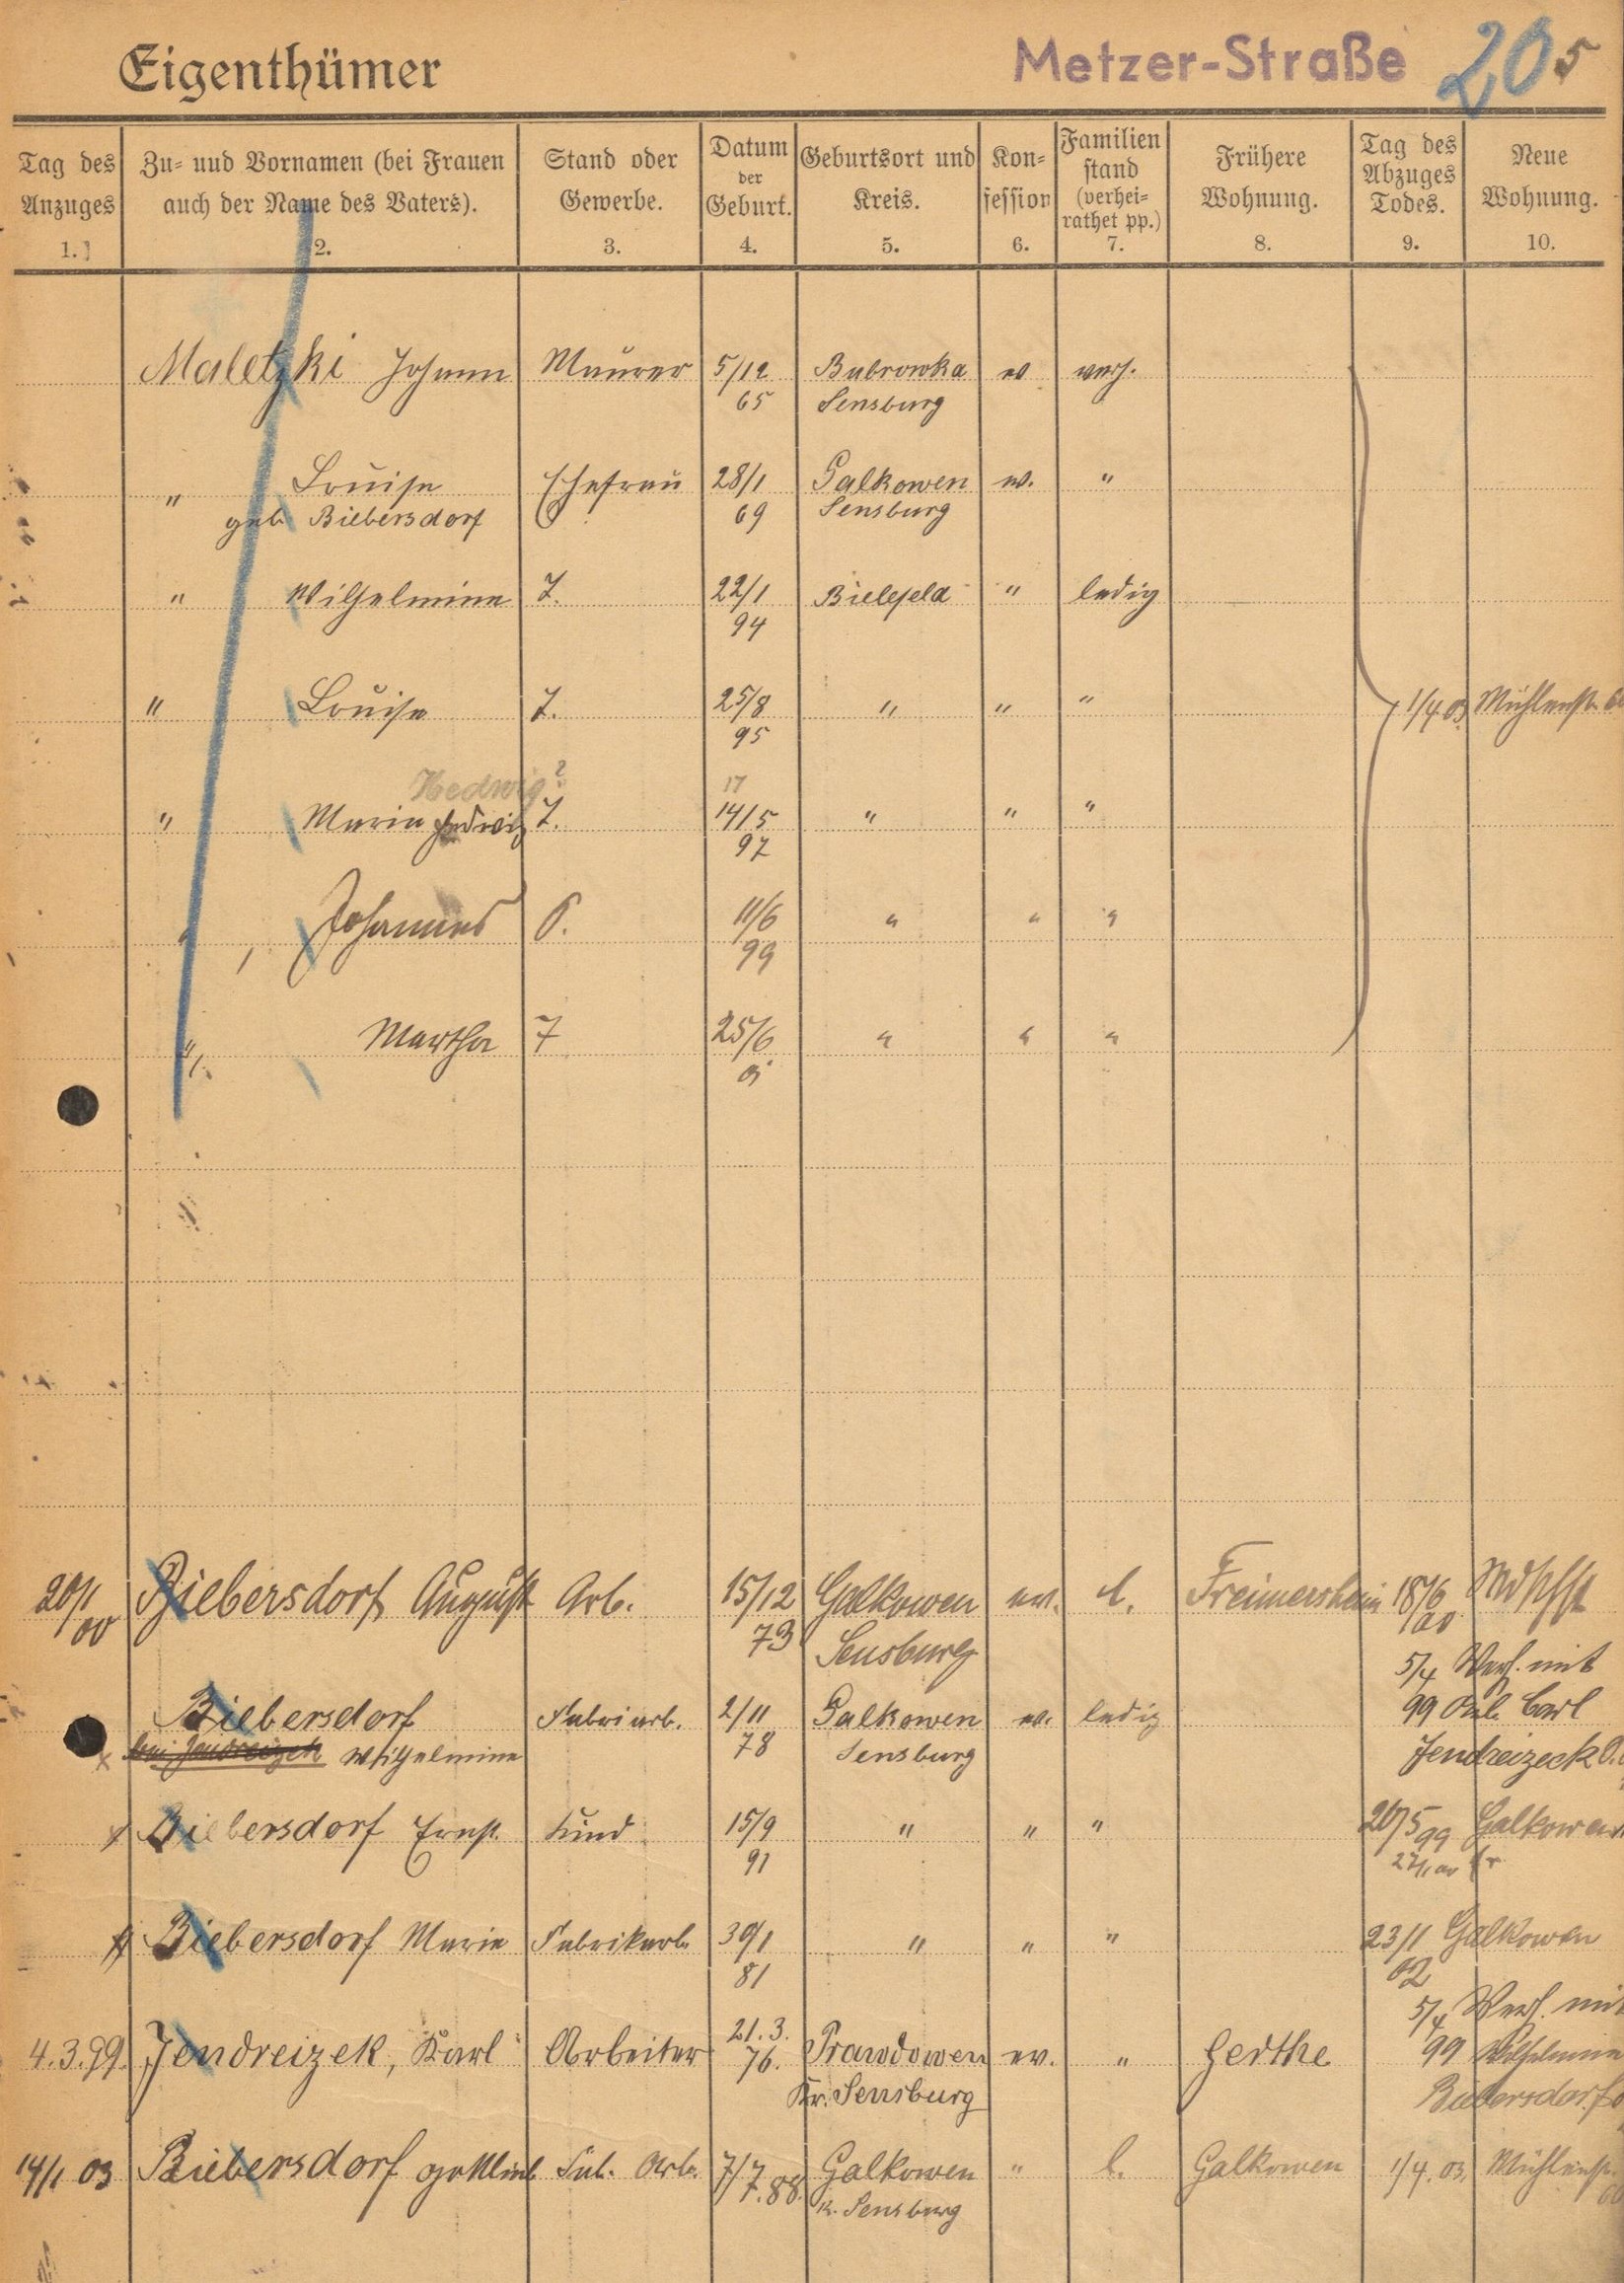 Eigenthümer
Metzer-Straße 20 5
Tag des Anzuges 1.
Zu- und Vornamen (bei Frauen auch der Name des Vaters). 2.
Stand oder Gewerbe. 3.
Datum der Geburt. 4.
Geburtsort und Kreis. 5.
Kon- fession 6.
Familien stand (verhei- rathet pp.) 7.
Frühere Wohnung. 8.
Tag des Abzuges Todes. 9.
Neue Wohnung. 10.
Maletzki Johann Maurer 5/12 Bubrowka ev verh.
65 Sensburg
" Louise Ehefrau 28/1 Galkowen ev. "
geb Biebersdorf 69 Sensburg
" Wilhelmine T. 22/1 Bielefeld " ledig
94
" Louise T. 25/8 " " " 1/4 03 Mühlenstr.
95
Hedwig? 17
" Marie Hedwig T. 14/5 " " "
97
" Johannes S. 11/6 " " "
99
" Martha T 25/6 " " "
20/1 Biebersdorf August Arb. 15/12 Galkowen ev. l. Freimersheim 18/6
00 73 Sensburg 00
5/4 Verh. mit
Biebersdorf Fabriarb. 2/11 Galkowen ev. ledig 99 Carl
bei Jendreizek Wilhelmine 78 Sensburg Jendreizeck
Biebersdorf Ernst Kind 15/9 " " " 20/5 99 Galkowen
91
Biebersdorf Marie Fabrikarb. 30/1 " " " 23/1 Galkowen
81 02
5/4 Verh. mit
4.3.99. Jendreizek, Karl Arbeiter 21.3. 76. Prawdowen ev. " Gerthe 99 Wilhelmine
Kr. Sensburg Biebersdorf
14/1 03 Biebersdorf Gottlieb Fab. Arb. 7/7.88. Galkowen " l. Galkowen 1/4.03. Mühlenstr.
K. Sensburg 60